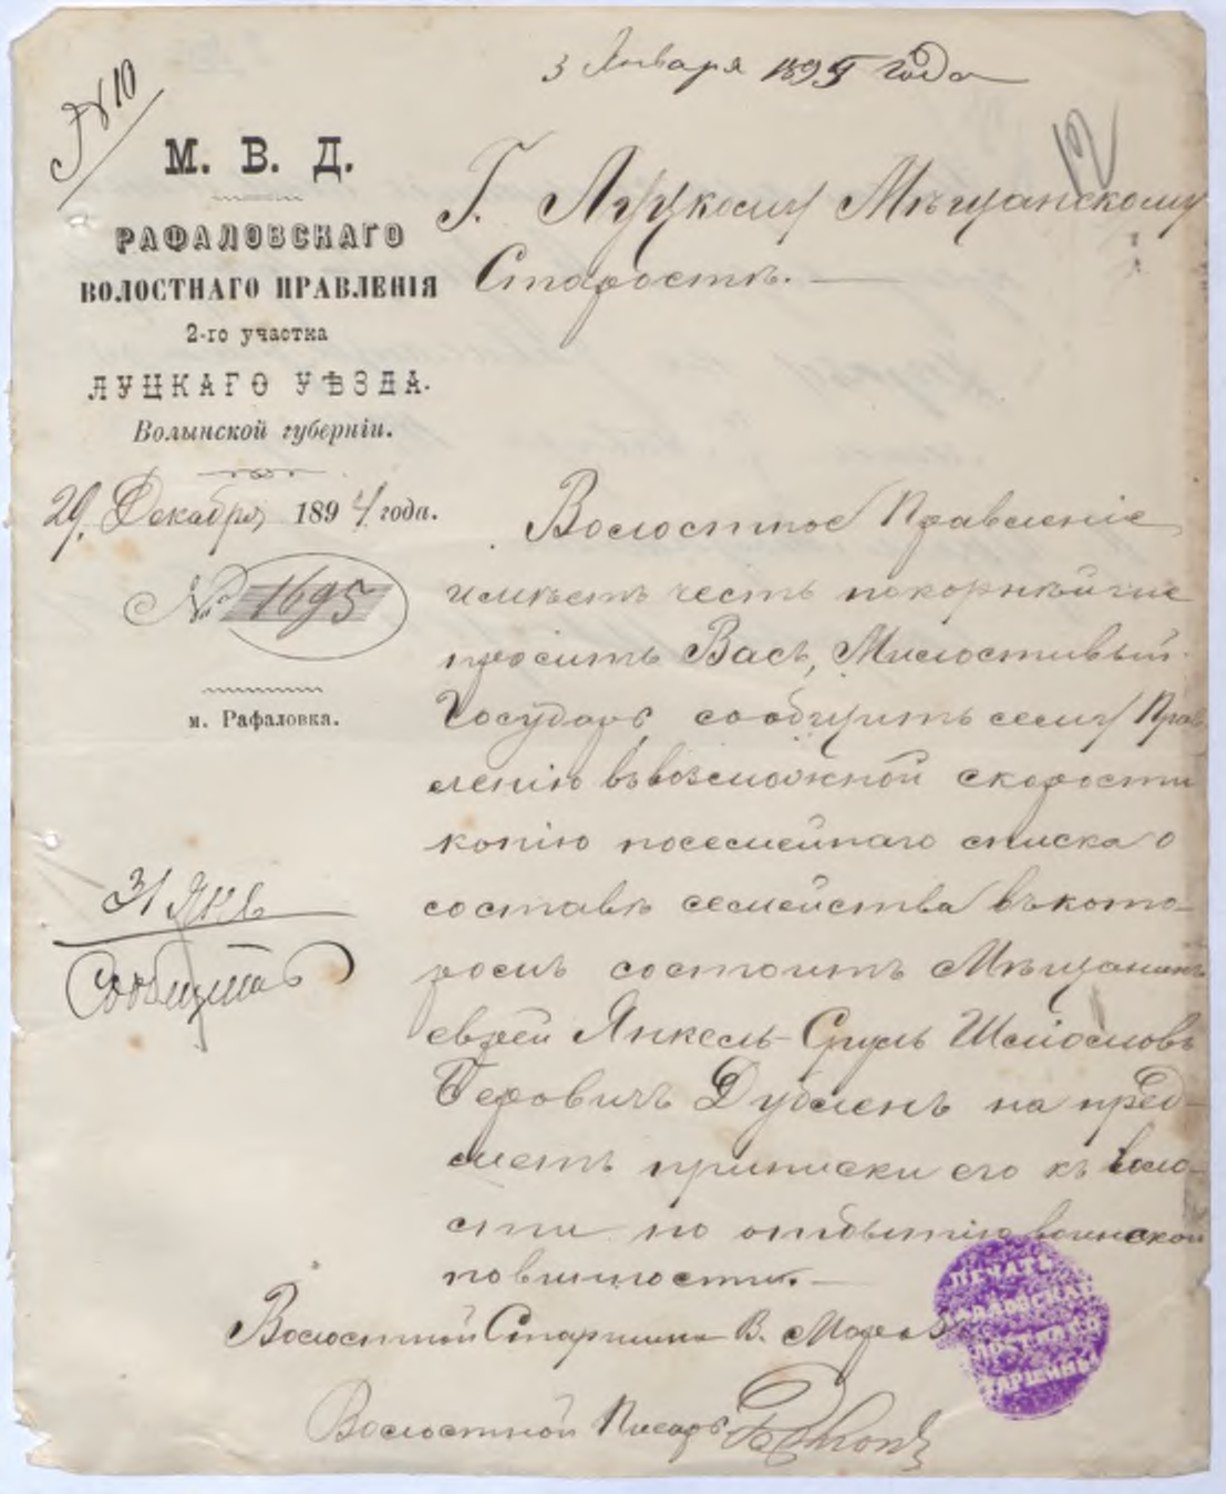 3 Января 1895 года
№ 10
12
М. В. Д.
РАФАЛОВСКАГО
ВОЛОСТНАГО ПРАВЛЕНІЯ
2-го участка
ЛУЦКАГО УѢЗДА.
Волынской губерніи.
29 Декабря 1894 года.
№ 1695
м. Рафаловка.
Г. Луцкому Мѣщанскому
Старостѣ.
Волостное Правленіе
имѣетъ честь покорнѣйше
просить Васъ, Милостивый
Государь, сообщить сему Прав
ленію въ возможной скорости
копію посемейнаго списка о
составѣ семейства въ кото-
ромъ состоитъ Мѣщанинъ
еврей Янкель-Сруль Шліомовъ
Беровичъ Дубменъ на пред-
метъ приписки его къ воло-
сти по отбытію воинской
повинности.
31 Янв
Сообщить
Волостной Старшина В.
Волостной Писарь
ПЕЧАТЬ
СТАРШИНЫ